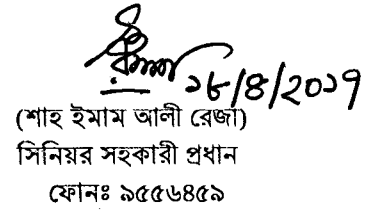 ১৮/৪/২০১৭
(শাহ ইমাম আলী রেজা)
সিনিয়র সহকারী প্রধান
ফোনঃ ৯৫৫৬৪৫৯